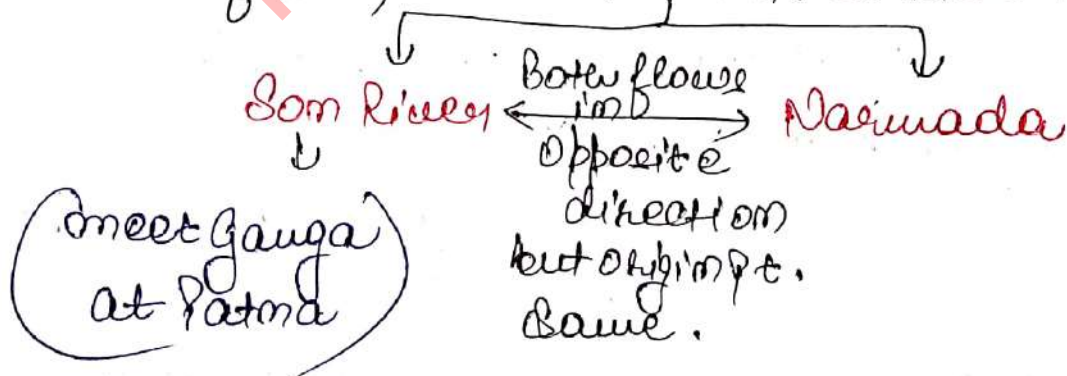 Son River
Both flows
in
opposite
direction
but origin pt.
same.
Narmada
meet Ganga
at Patna